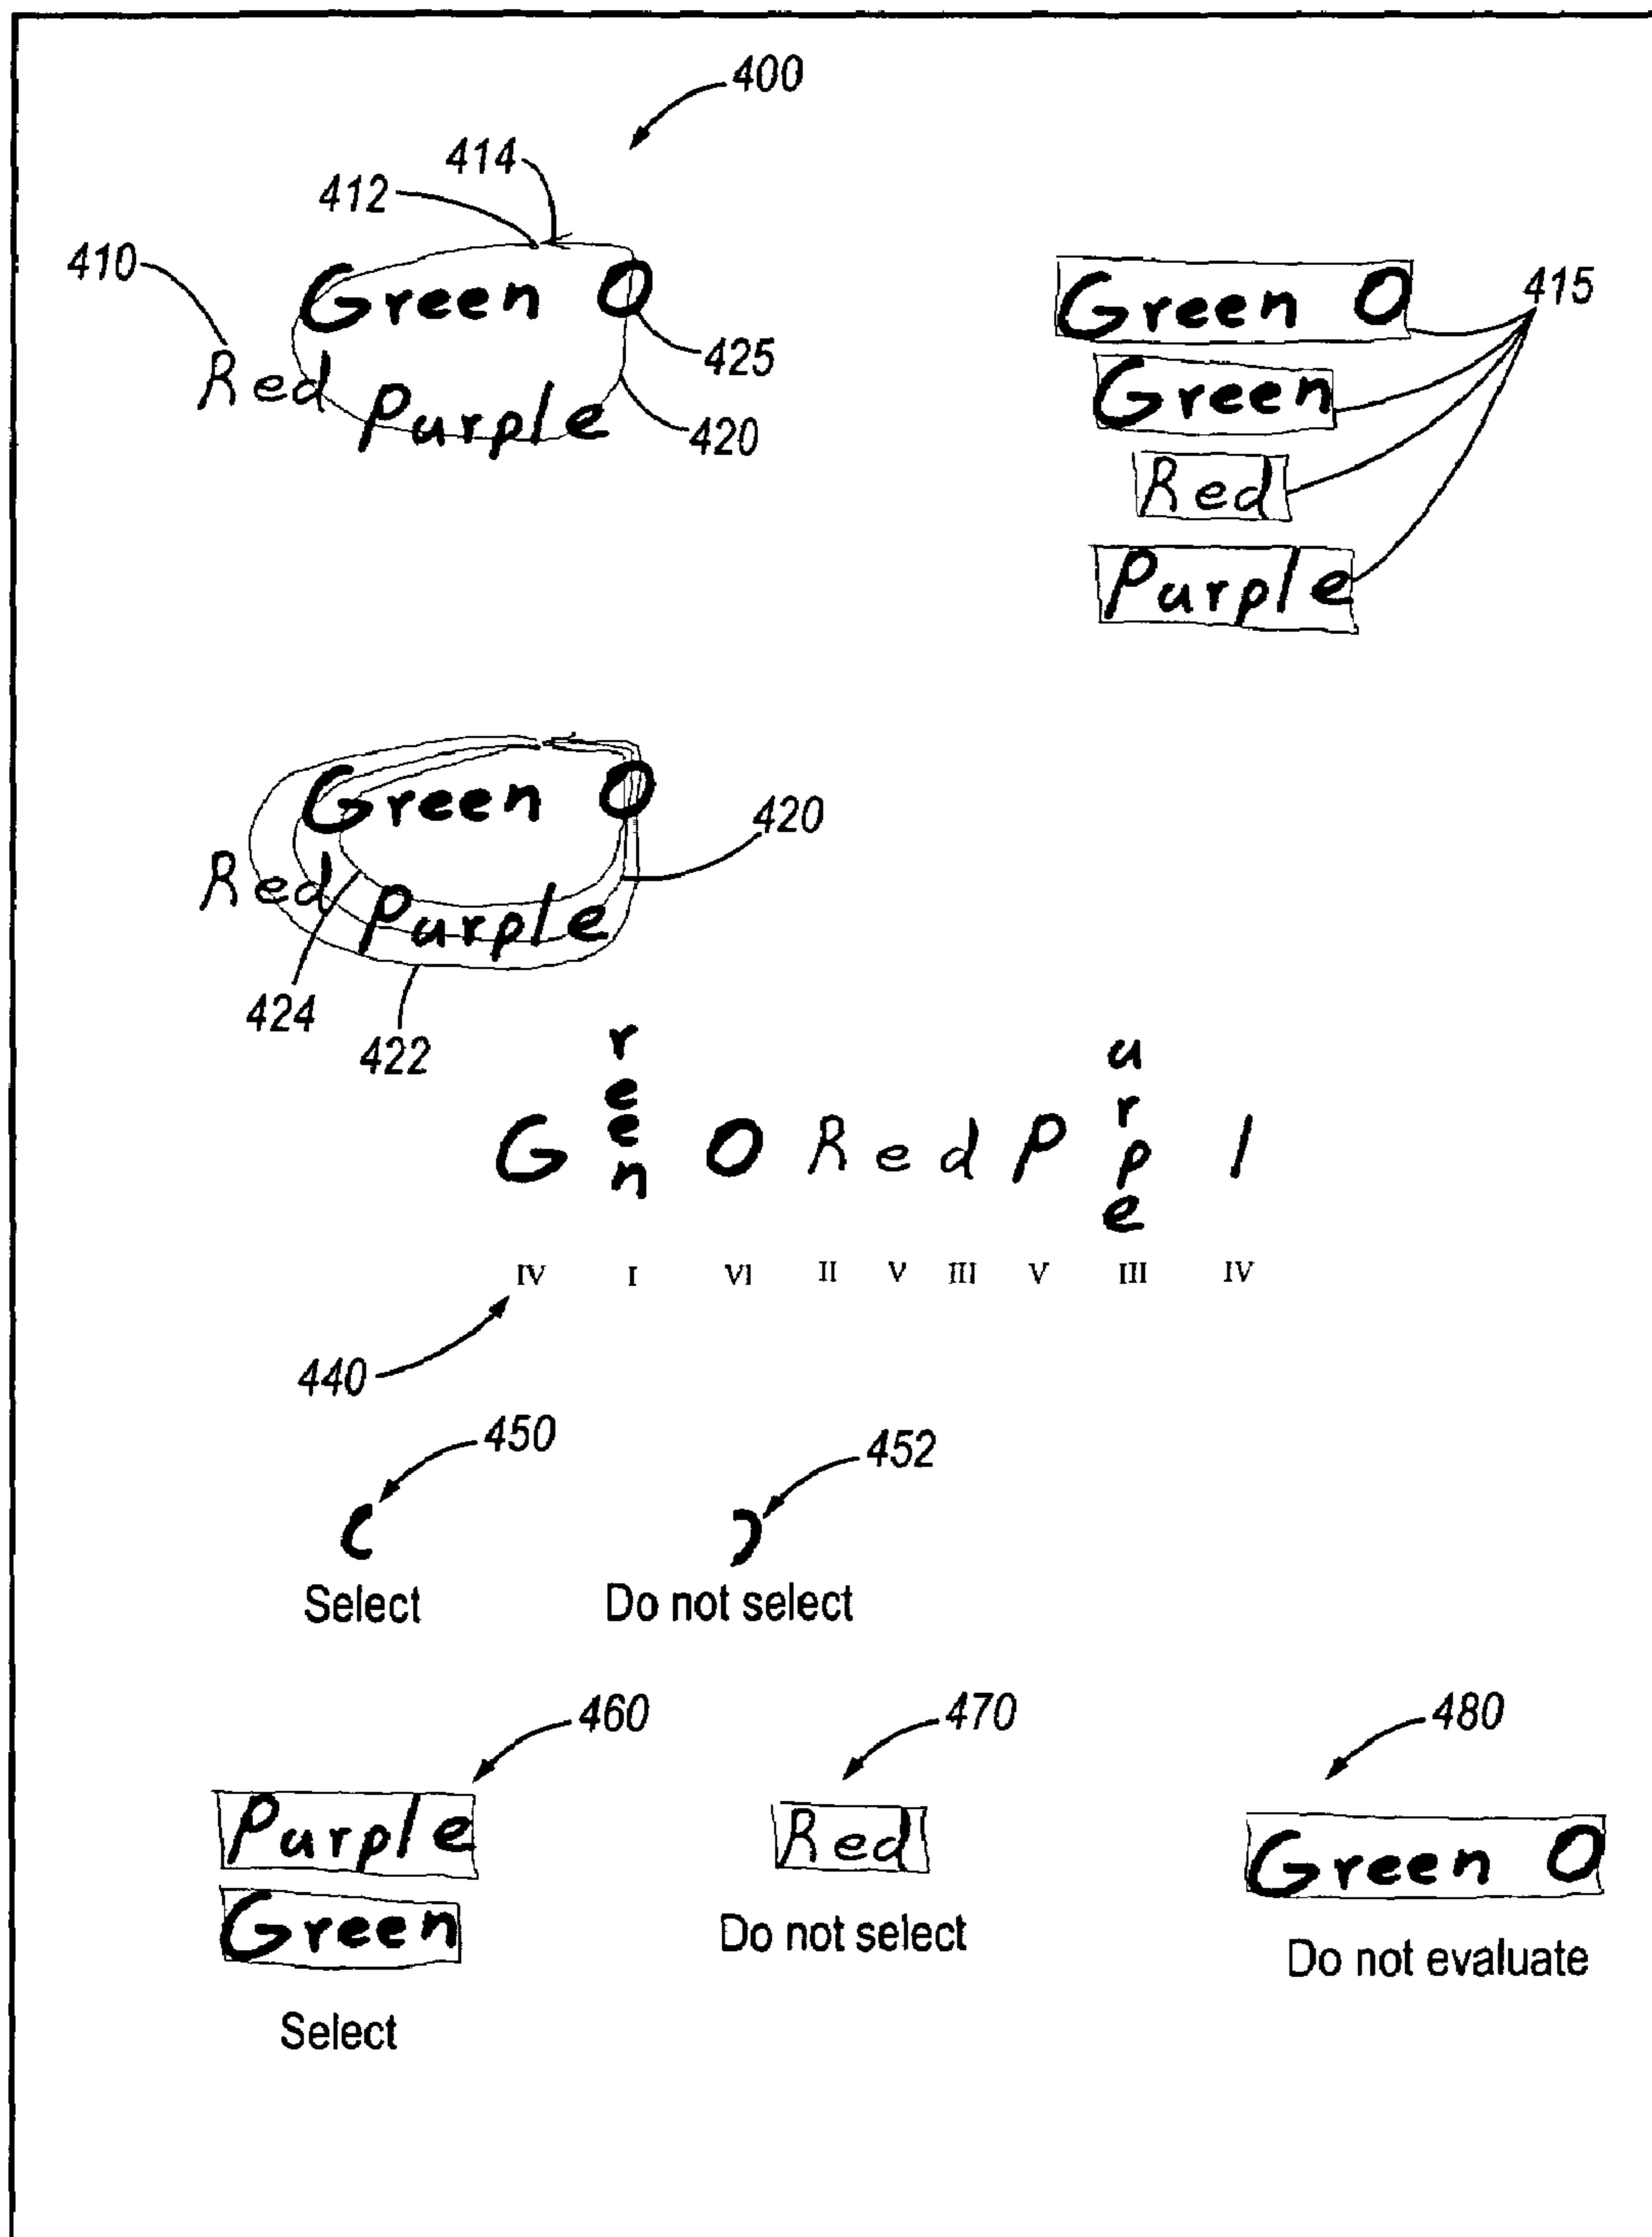 400
414
412
410
Green O
425
Red
Purple
420
Green O
415
Green
Red
Purple
Green O
420
Red
Purple
424
422
r
e
e
n
u
r
p
e
G O R e d P l
IV I VI II V III V III IV
440
450
452
Select
Do not select
460
470
480
Purple
Green
Select
Red
Do not select
Green O
Do not evaluate